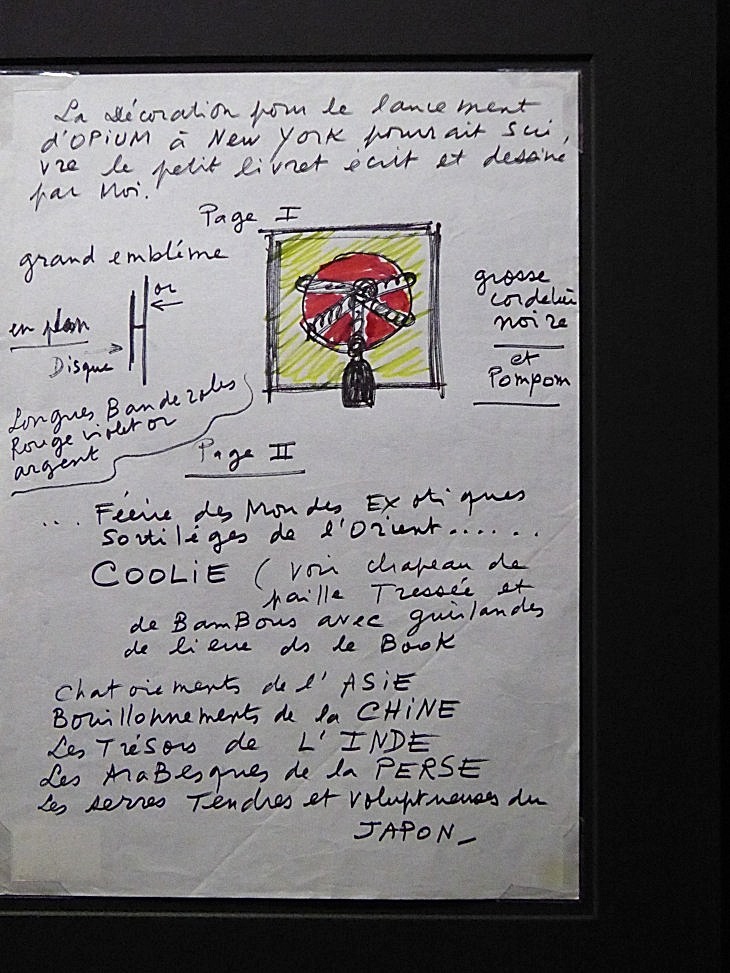 La Décoration pour le lancement
d'OPiUM à New York pourrait Sui,
vre le petit livret écrit et dessiné
par Moi.
Page I
grand emblème
or
en plan
Disque
grosse
cordeliè
noire
et
Pompom
Longues Banderoles
Rouge violet or
argent
Page II
... Féérie des Mondes EXotiques
Sortiléges de l'Orient......
COOLiE ( voir chapeau de
paille Tressée et
de BamBous avec guirlandes
de lierre ds le Book
Chatoiements de l' ASiE
Bouillonnements de la CHiNE
Les TréSors de L' INDE
Les AraBesques de la PERSE
Les serres Tendres et voluptueuses du
JAPON_